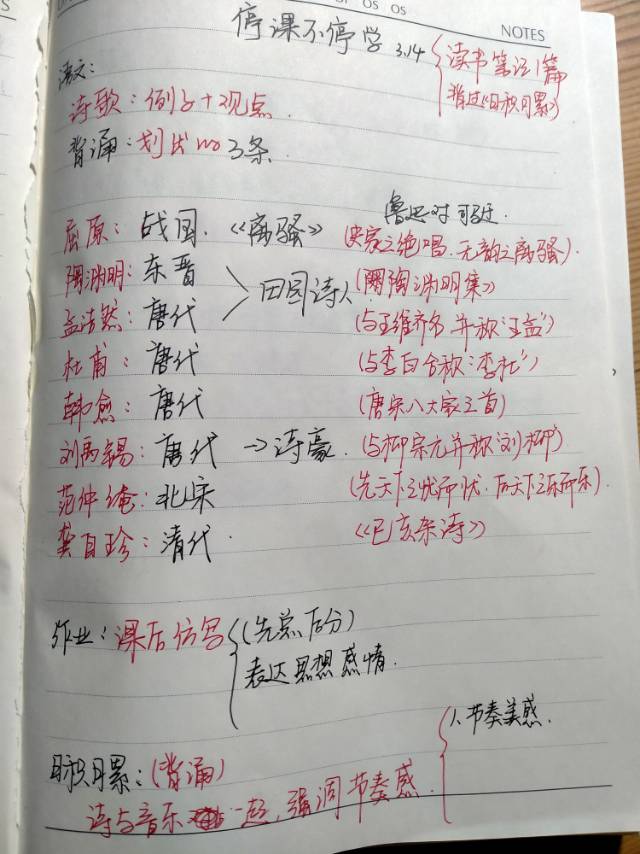 OS OS
NOTES
停课不停学 3.14
读书笔记1篇
背过《日积月累》
语文:
诗歌:例子+观点
背诵:划出 3条
鲁迅对司马迁
屈原:战国.《离骚》(史家之绝唱.无韵之离骚).
陶渊明:东晋 田园诗人 陶渊明集》
孟浩然:唐代 (与王维齐名 并称"王孟")
杜甫:唐代 (与李白合称:"李杜")
韩愈:唐代 (唐宋八大家之首)
刘禹锡:唐代 →诗豪. (与柳宗元并称"刘柳")
范仲淹:北宋 (先天下之忧而忧.后天下之乐而乐).
龚自珍:清代. 《己亥杂诗》
作业:课后仿写 (先总后分)
表达思想感情.
1、节奏美感.
日积月累:(背诵)
诗与音乐 一起,强调节奏感.